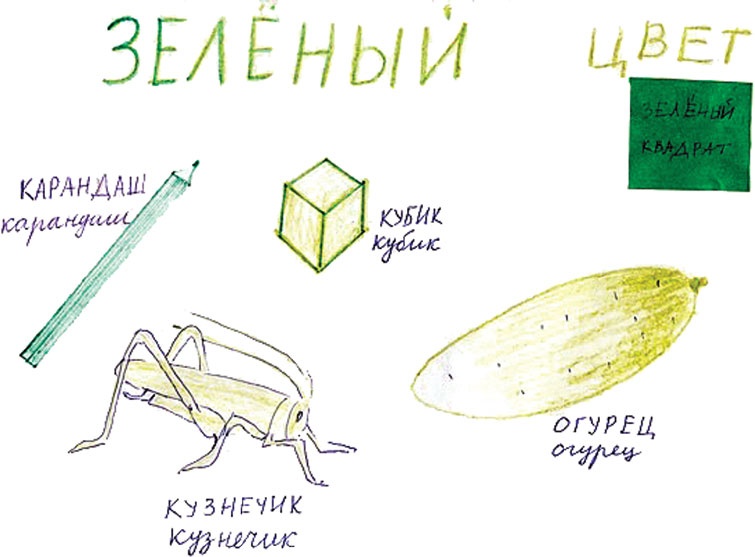 ЗЕЛЁНЫЙ ЦВЕТ
ЗЕЛЁНЫЙ
КВАДРАТ
КАРАНДАШ
карандаш
КУБИК
кубик
ОГУРЕЦ
огурец
КУЗНЕЧИК
Кузнечик